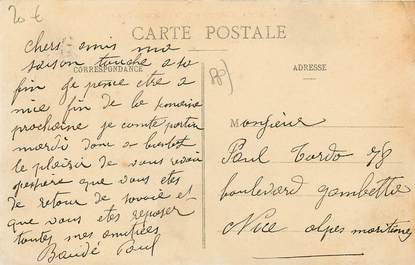 20 €
CARTE POSTALE
CORRESPONDANCE
ADRESSE
chers amis ma
saison touche a sa
fin je pense etre a
nice fin de la semaine
prochaine je compte partir
mardi donc a bientot
le plaisir de vous revoir
j'espere que vous etes
de retour de savoie et
que vous etes reposer
toutes mes amitiées
Baudé Paul
Monsieur
Paul Tordo 78
boulevard gambetta
Nice alpes maritimes